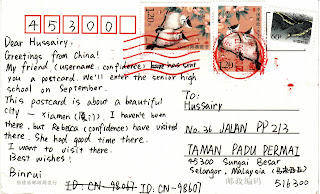 45300
Dear Hussairy,
Greetings from China!
My friend (username: confidence) have sent
you a postcard. We'll enter the senior high
school on September.
This postcard is about a beautiful
city - Xiamen (厦门). I haven't been
there, but Rebecca (confidence) have visited
there. She had good time there.
I want to visit there.
Best wishes!
Binrui
ID: CN-98607
ID: CN-98607
To:
Hussairy
No. 36 JALAN PP 2/3
TAMAN PADU PERMAI
45300 Sungai Besar
Selangor, Malaysia
邮政编码
516300
1.20
1.20